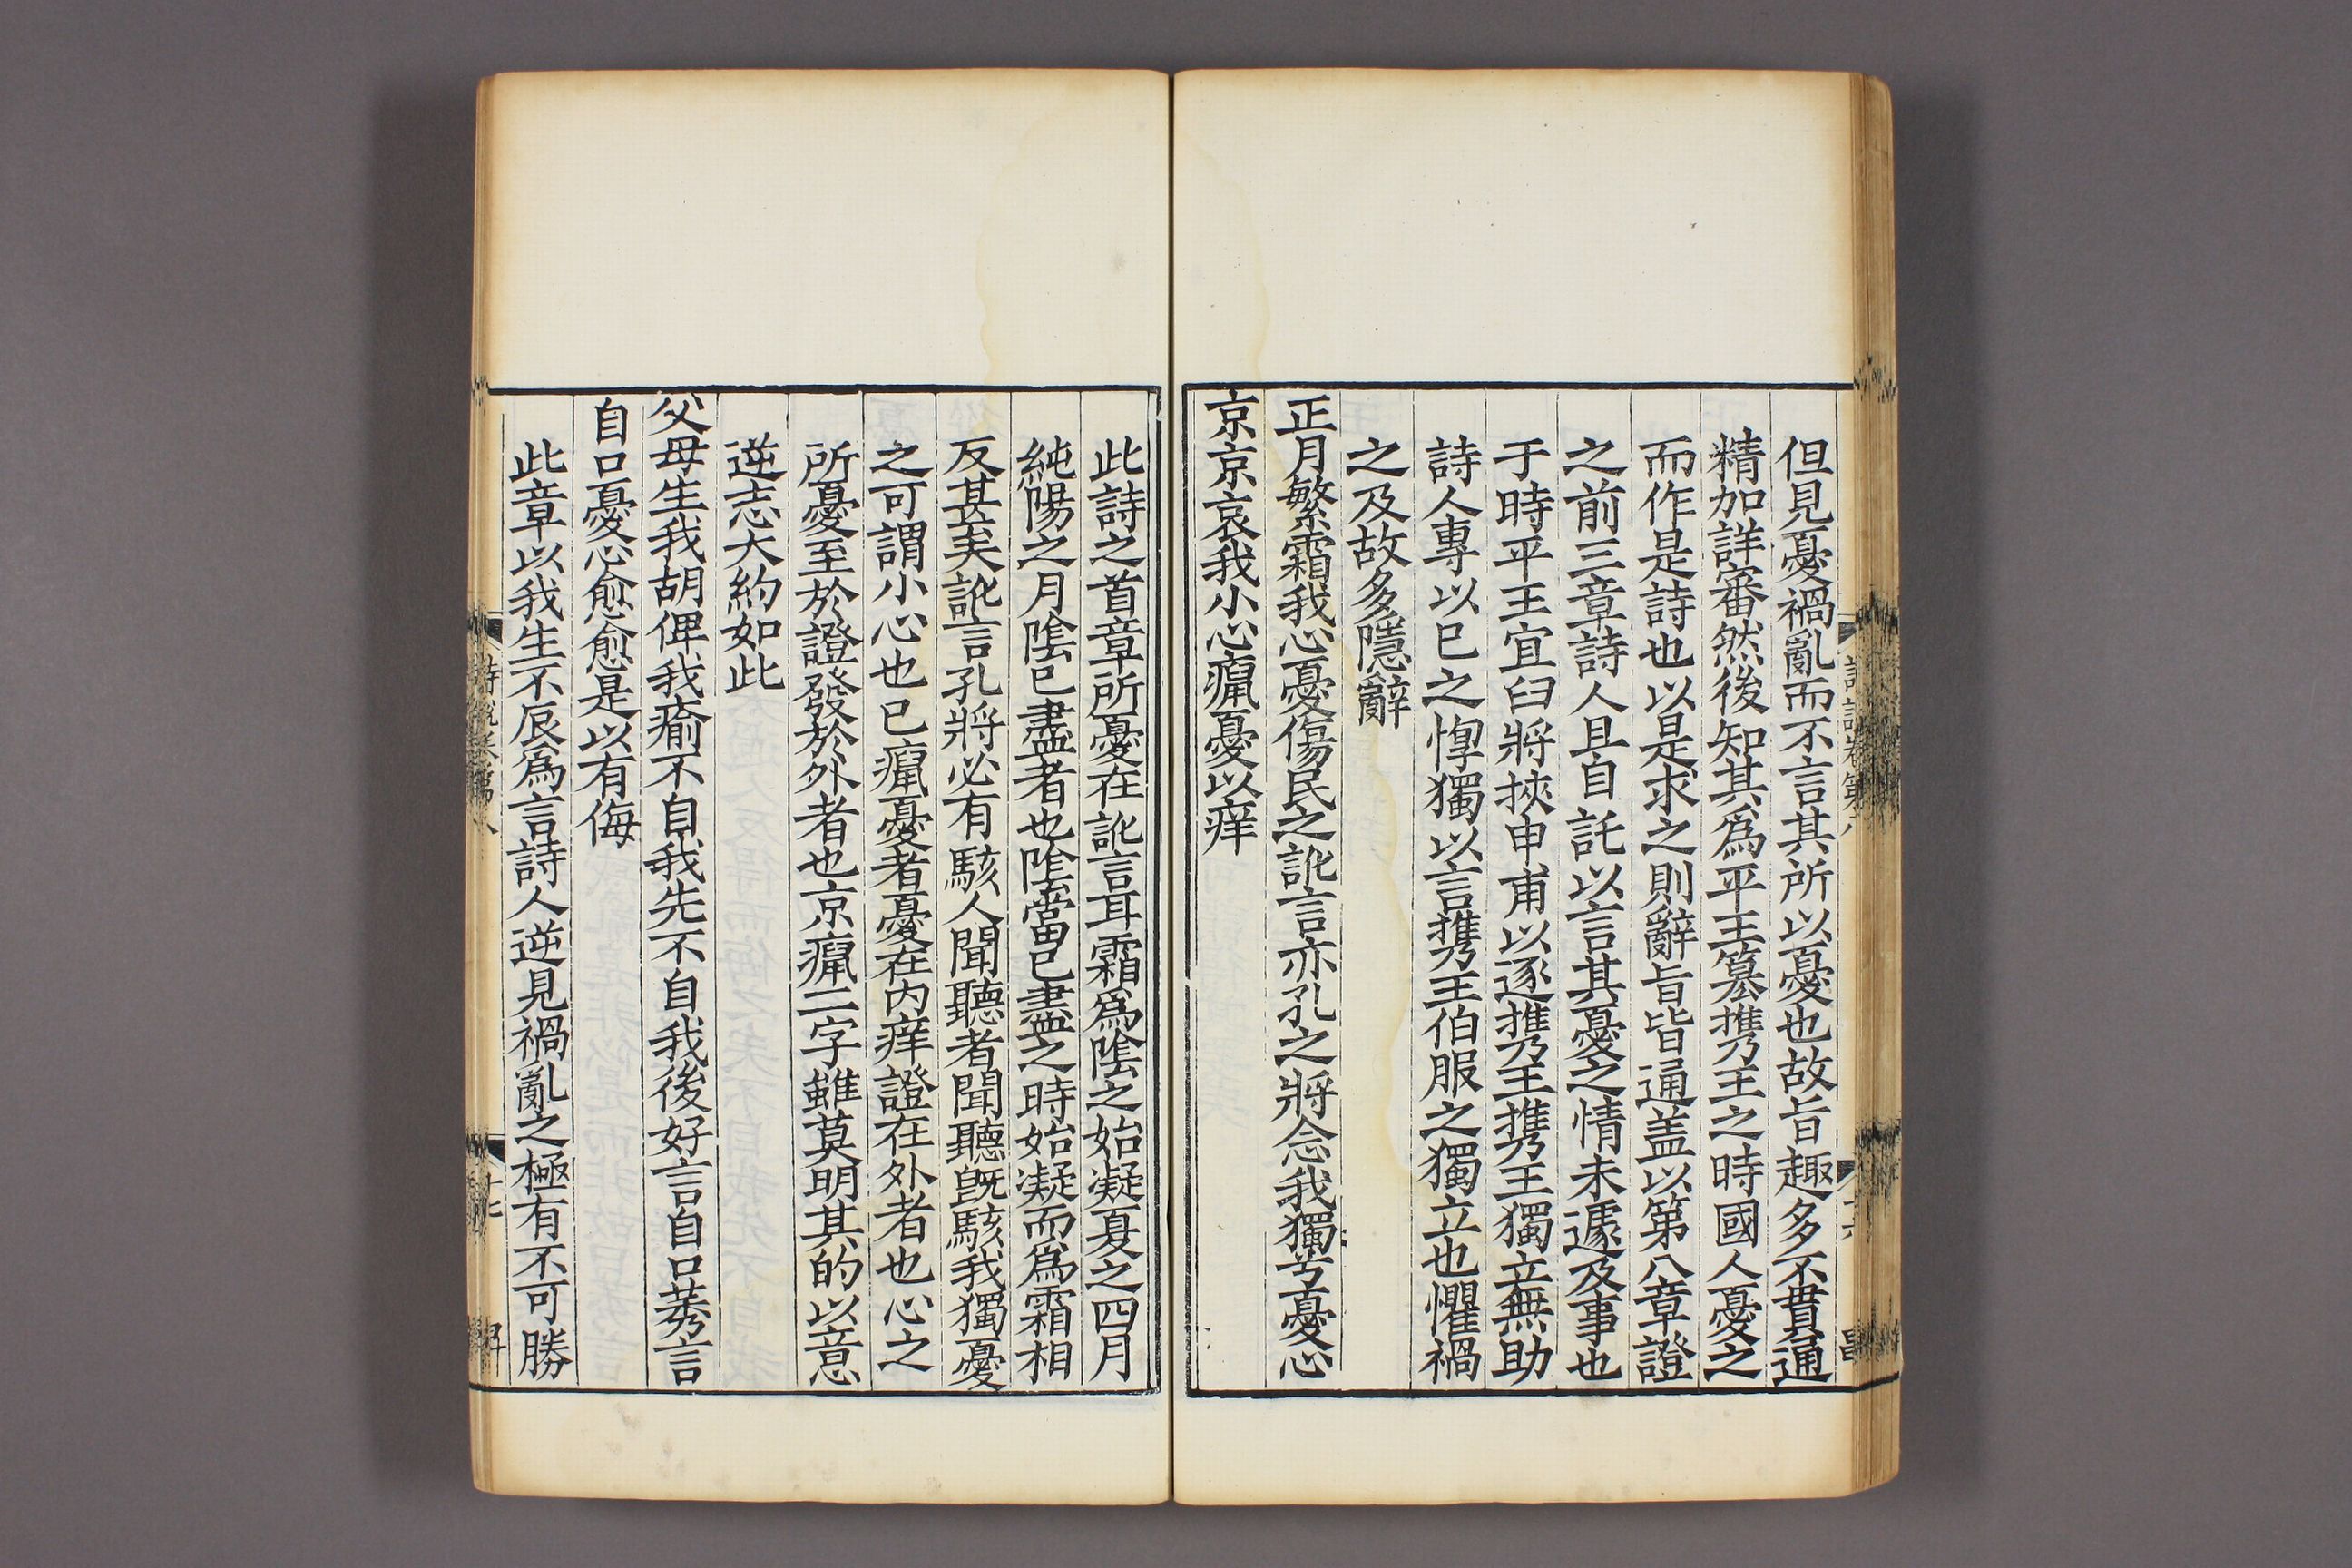 但見憂禍亂而不言其所以憂也故旨趣多不貫通
精加詳審然後知其爲平王簒携王之時國人憂之
而作是詩也以是求之則辭旨皆通盖以第八章證
之前三章詩人且自託以言其憂之情未遽及事也
于時平王宜臼將挾申甫以逐携王携王獨立無助
詩人專以已之惸獨以言携王伯服之獨立也懼禍
之及故多隱辭
正月繁霜我心憂傷民之訛言亦孔之將念我獨兮憂心
京京哀我小心癙憂以痒
此詩之首章所憂在訛言耳霜爲陰之始凝夏之四月
純陽之月陰已盡者也陰當已盡之時始凝而爲霜相
反甚矣訛言孔將必有駭人聞聽者聞聽旣駭我獨憂
之可謂小心也已癙憂者憂在内痒證在外者也心之
所憂至於證發於外者也京癙二字雖莫明其的以意
逆志大約如此
父母生我胡俾我瘉不自我先不自我後好言自口莠言
自口憂心愈愈是以有侮
此章以我生不辰爲言詩人逆見禍亂之極有不可勝
詩說卷第八
十七